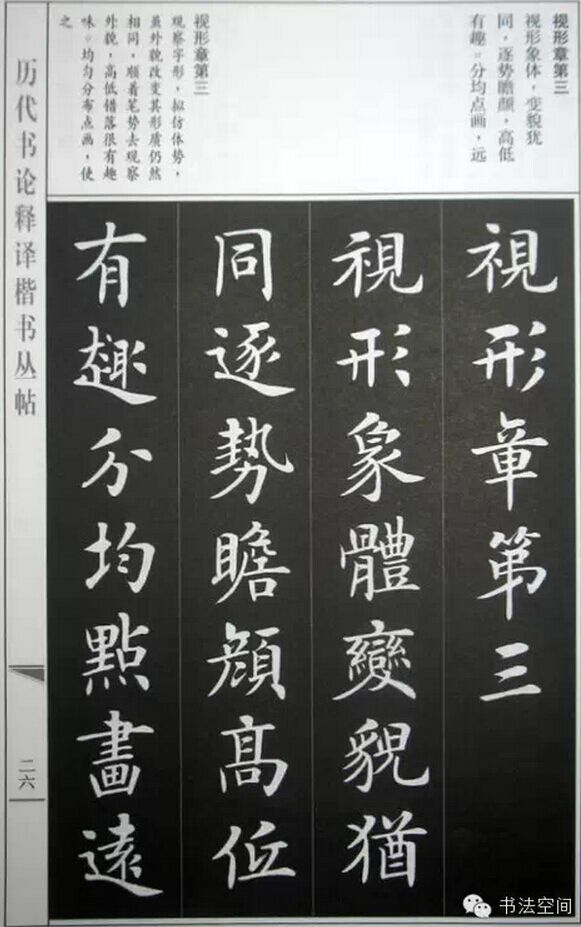 视形章第三
视形象体，变貌犹
同，逐势瞻颜，高低
有趣。分均点画，远
视形章第三
观察字形，拟仿体势，
虽外貌改变其形质仍然
相同，顺着笔势去观察
外貌，高低错落很有趣
味。均匀分布点画，使
之
視形章第三
視形象體變貌猶
同逐勢瞻顏高低
有趣分均點畫遠
历代书论释译楷书丛帖
二六
书法空间